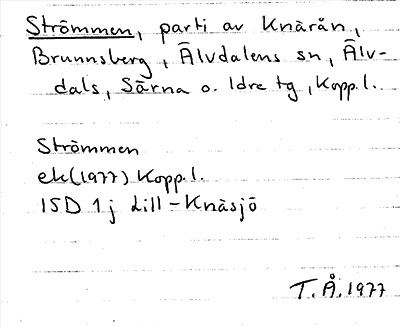 Strömmen, parti av Knärån,
Brunnsberg, Älvdalens sn, Älv-
dals, Särna o. Idre tg, Kopp.l.
Strömmen
ek(1977) Kopp.l.
15D 1j Lill-Knäsjö
T.Å. 1977